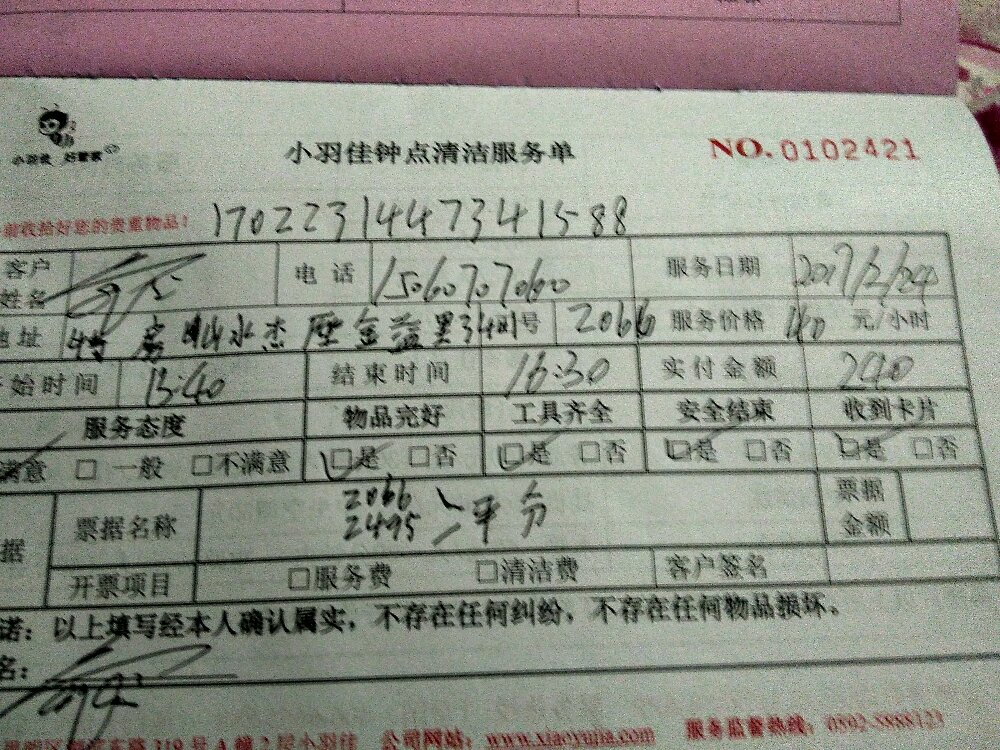 小羽佳 好管家
小羽佳钟点清洁服务单
NO. 0102421
前收拾好您的贵重物品！ 17022314473415 88
客户姓名 电话 15060707060 服务日期 2017/2/24
地址 号 2066 服务价格 40 元/小时
始时间 13:40 结束时间 16:30 实付金额 240
服务态度 物品完好 工具齐全 安全结束 收到卡片
满意 □ 一般 □不满意 □是 □否 □是 □否 □是 □否 □是 □否
据 票据名称 2066 2495 平分 票据金额
开票项目 □服务费 □清洁费 客户签名
诺：以上填写经本人确认属实，不存在任何纠纷，不存在任何物品损坏。
名：
319号A幢2层小羽佳 公司网站：www.xiaoyujia.com 服务监督热线：0592-5888123